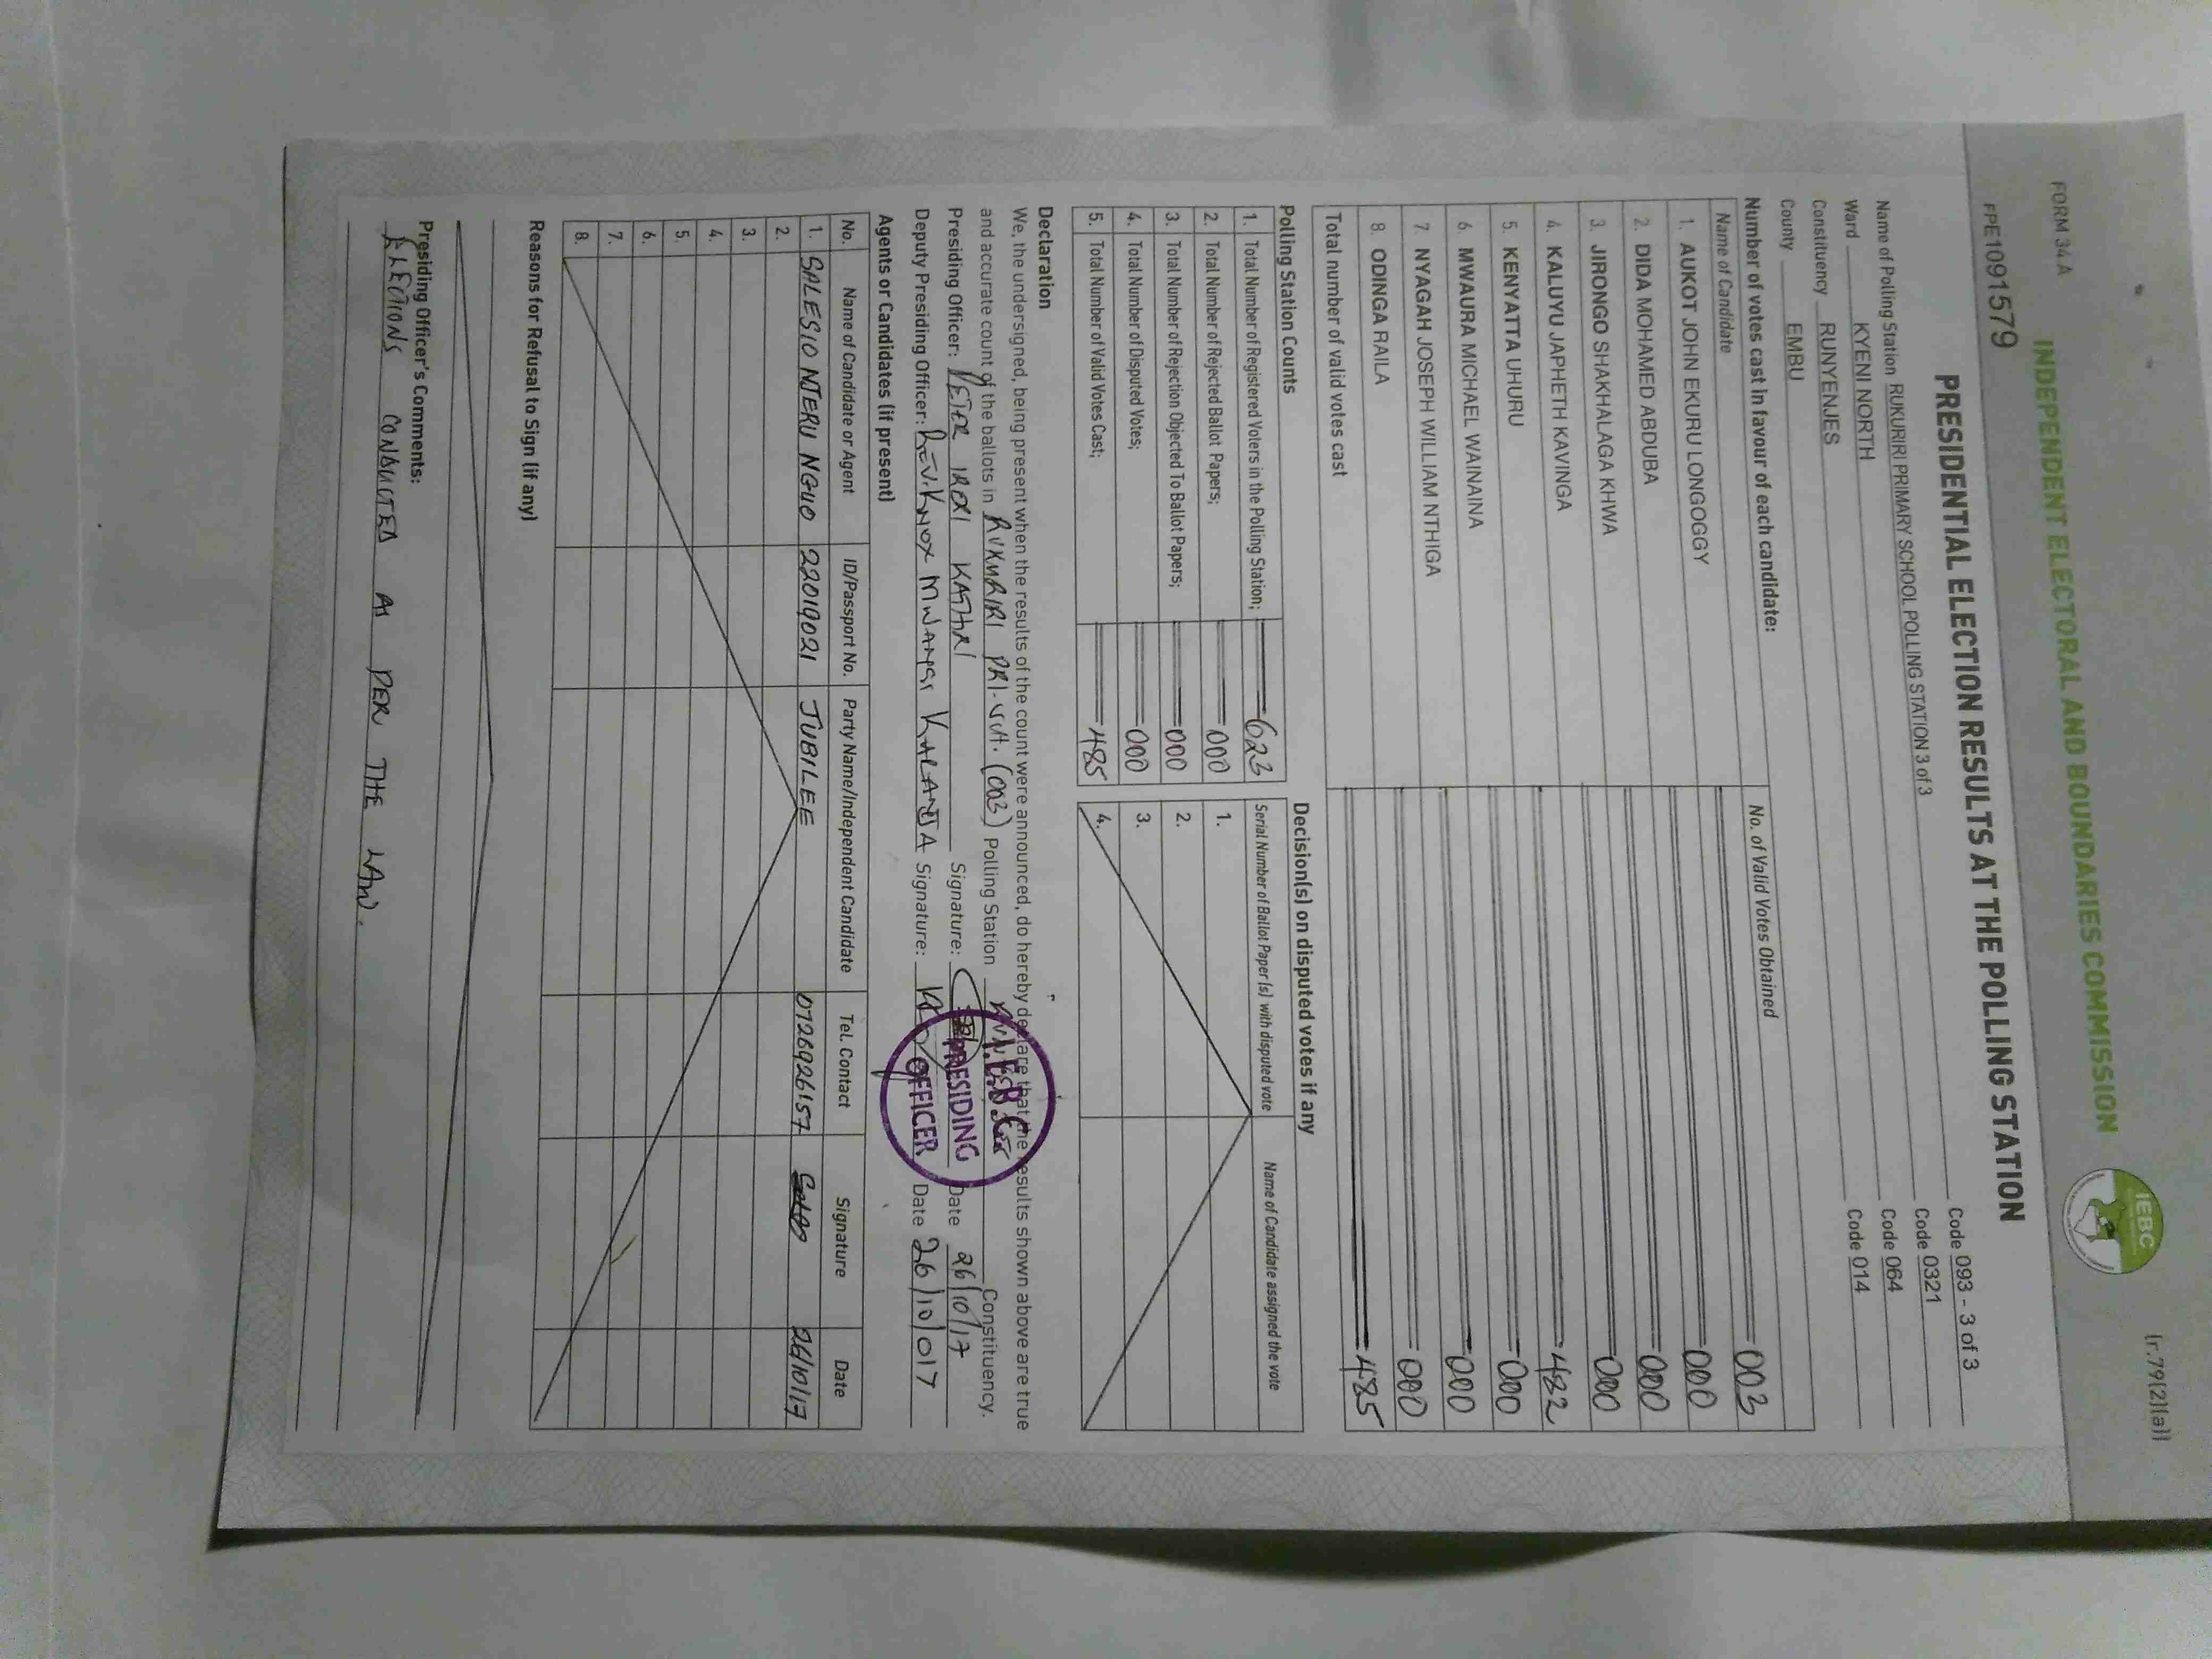 FORM 34 A
(r.79(2)(a))
INDEPENDENT ELECTORAL AND BOUNDARIES COMMISSION
IEBC
FPE1091579
PRESIDENTIAL ELECTION RESULTS AT THE POLLING STATION
Name of Polling Station RUKURIRI PRIMARY SCHOOL POLLING STATION 3 of 3 Code 093 - 3 of 3
Ward KYENI NORTH Code 0321
Constituency RUNYENJES Code 064
County EMBU Code 014
Number of votes cast in favour of each candidate:
Name of Candidate No. of Valid Votes Obtained
1. AUKOT JOHN EKURU LONGOGGY 003
2. DIDA MOHAMED ABDUBA 000
3. JIRONGO SHAKHALAGA KHWA 000
4. KALUYU JAPHETH KAVINGA 000
5. KENYATTA UHURU 482
6. MWAURA MICHAEL WAINAINA 000
7. NYAGAH JOSEPH WILLIAM NTHIGA 000
8. ODINGA RAILA 000
Total number of valid votes cast 485
Polling Station Counts
1. Total Number of Registered Voters in the Polling Station; 623
2. Total Number of Rejected Ballot Papers; 000
3. Total Number of Rejection Objected To Ballot Papers; 000
4. Total Number of Disputed Votes; 000
5. Total Number of Valid Votes Cast; 485
Decision(s) on disputed votes if any
Serial Number of Ballot Paper (s) with disputed vote Name of Candidate assigned the vote
1.
2.
3.
4.
Declaration
We, the undersigned, being present when the results of the count were announced, do hereby declare that the results shown above are true
and accurate count of the ballots in RUKURIRI PRI-SCH. (003) Polling Station Constituency.
Presiding Officer: PETER IRERI Signature: Date 26/10/17
Deputy Presiding Officer: KNOX MWANGI Signature: Date 26/10/017
I.E.B.C
PRESIDING
OFFICER
Agents or Candidates (if present)
No. Name of Candidate or Agent ID/Passport No. Party Name/Independent Candidate Tel. Contact Signature Date
1. SALESIO NTERU NGUO 22019021 JUBILEE 0726926157 26/10/17
2.
3.
4.
5.
6.
7.
8.
Reasons for Refusal to Sign (if any)
Presiding Officer's Comments:
ELECTIONS CONDUCTED AS PER THE LAW.